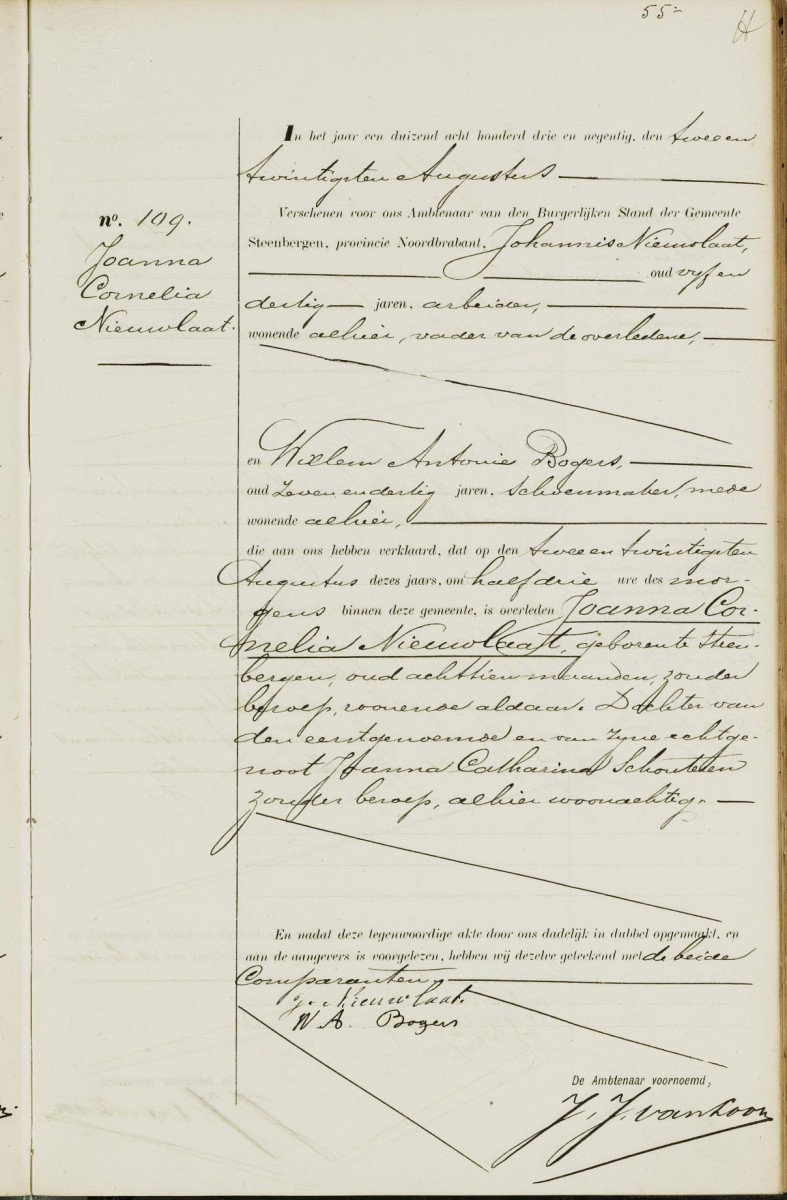 55
In het jaar een duizend acht honderd drie en negentig, den twee en
twintigsten Augustus
nº. 109.
Joanna
Cornelia
Nieuwlaat.
Verschenen voor ons Ambtenaar van den Burgerlijken Stand der Gemeente
Steenbergen, provincie Noordbrabant, Johannis Nieuwlaat,
oud vyf en
dertig jaren, arbeider,
wonende alhier, vader van de overledene,
en Willem Antonie Bogers,
oud zeven en dertig jaren, schoenmaker, mede
wonende alhier,
die aan ons hebben verklaard, dat op den twee en twintigsten
Augustus dezes jaars, om half drie ure des mor-
gens binnen deze gemeente, is overleden Joanna Cor-
nelia Nieuwlaat, geboren te Steen-
bergen, oud achttien maanden, zonder
beroep, wonende aldaar. Dochter van
den eerstgenoemde en van zyne echtge-
noot Joanna Catharina Schouteren
zonder beroep, alhier woonachtig.
En nadat deze tegenwoordige akte door ons dadelijk in dubbel opgemaakt, en
aan de aangevers is voorgelezen, hebben wij dezelve geteekend met de beide
Comparanten,
J. Nieuwlaat.
W A. Bogers
De Ambtenaar voornoemd,
J. J. van Loon